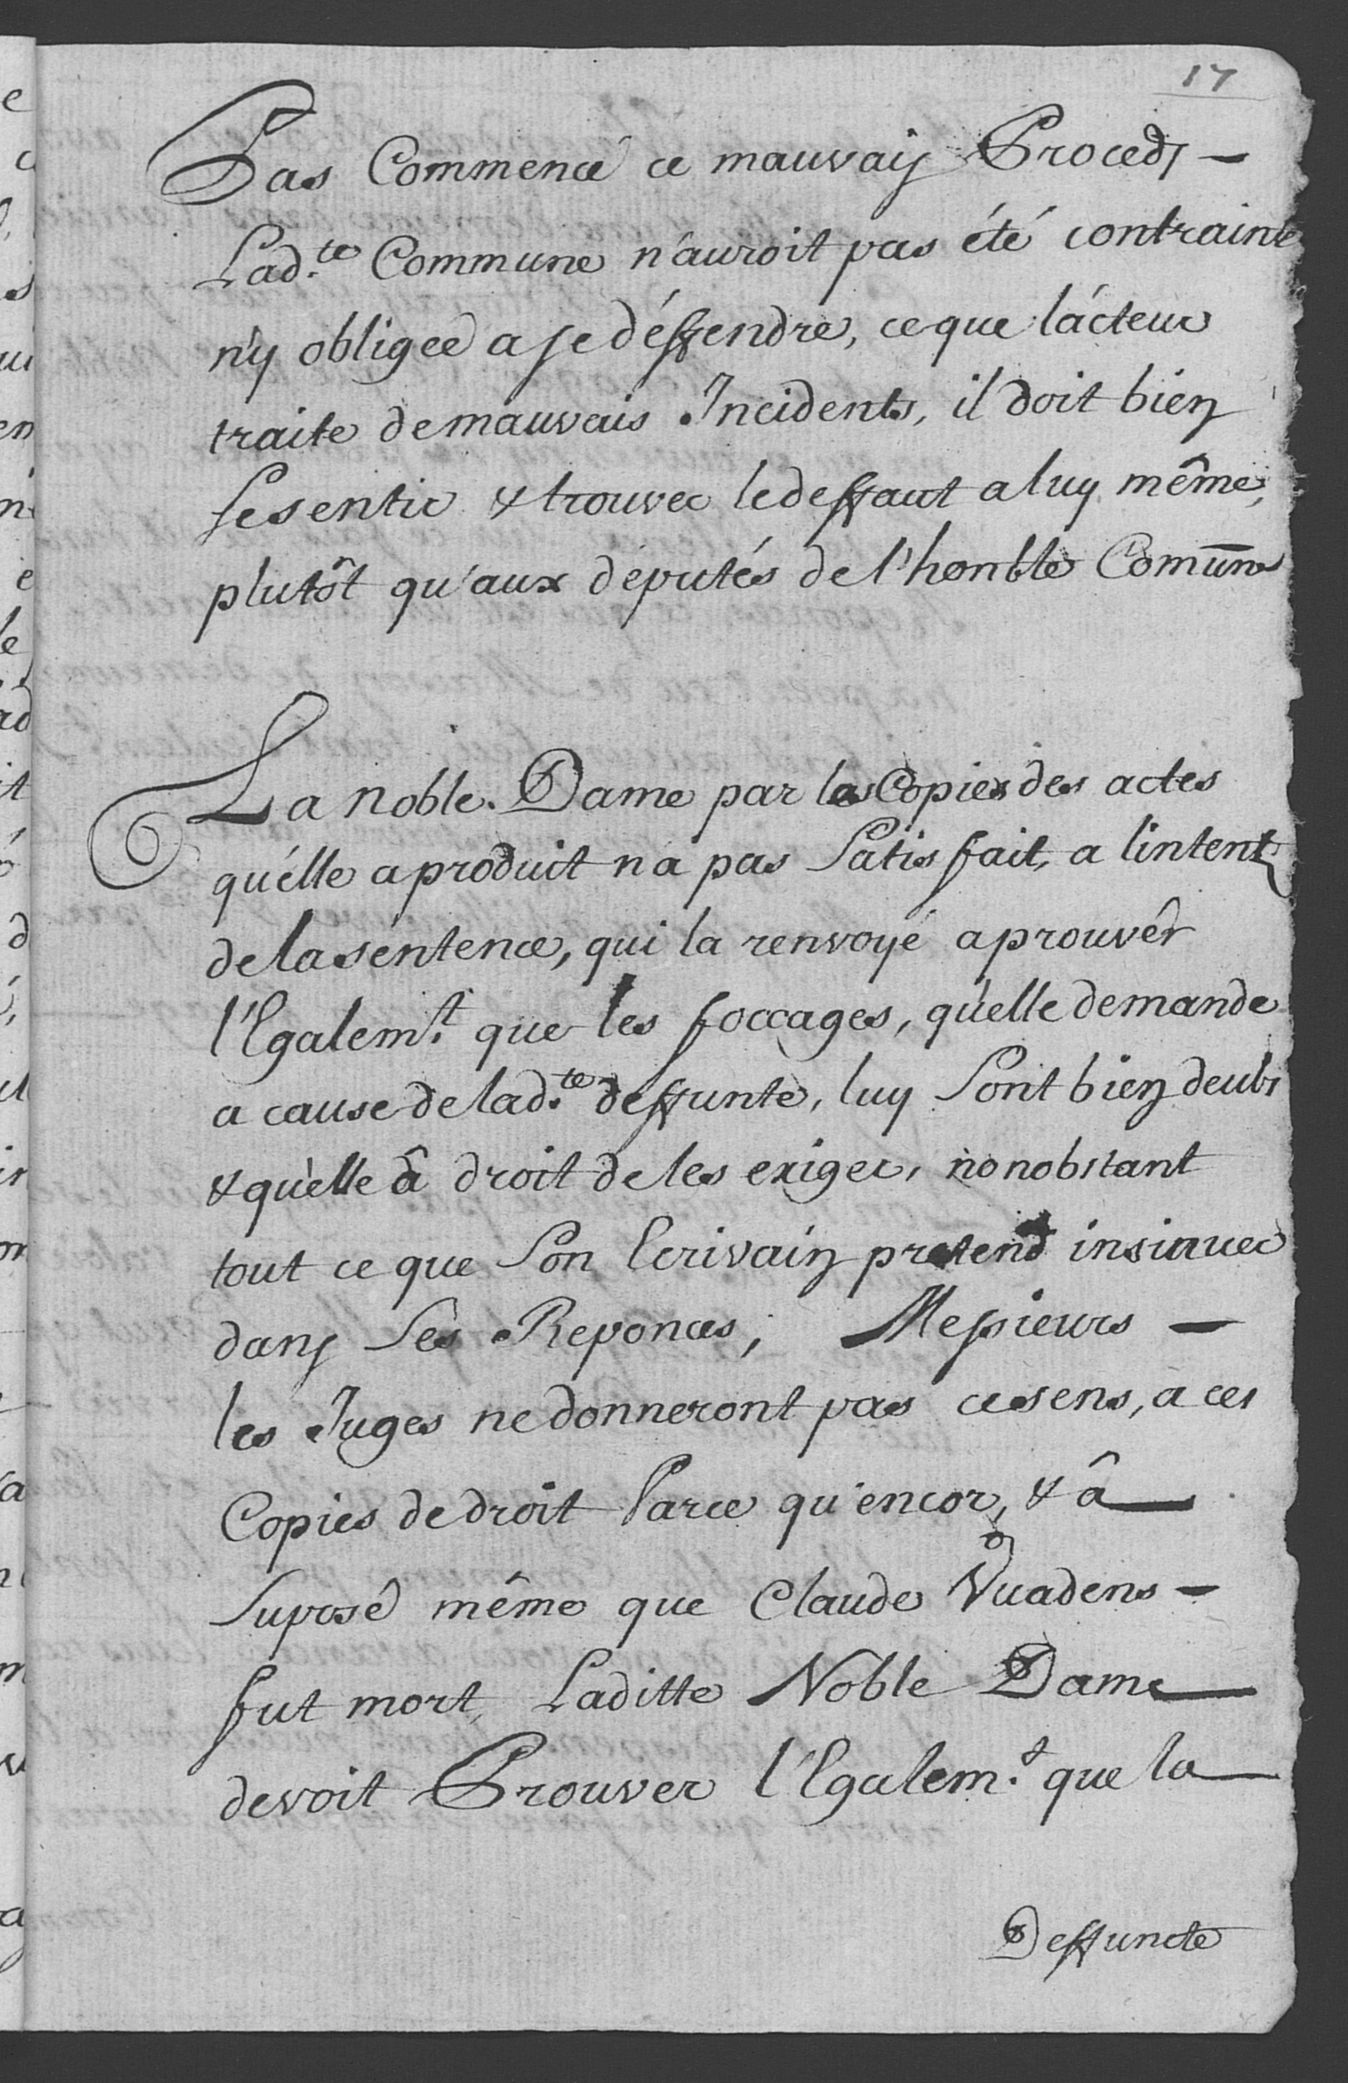 17
Pas Commencé ce mauvais Proceds –
Lad.te Commune n'auroit pas été contrainte
n'y obligee a se déffendre, ce que lácteur
traite de mauvais Incidents, il doit bien
Le sentir & trouver le deffaut a luy même,
plutôt qu'aux députés de l'honble Comune
La noble Dame par les Copies des actes
qu'élle a produit n a pas Satisfait, a lintent
de la séntence, qui la renvoyé a prouvêr
l'Egalem.t que les foccages, qu'elle demande
a cause de lad.te deffunte, luy Sont bien deubs
& qu'èlle â droit de les exiger, nonobstant
tout ce que Son Ecrivain pretend insinuer
dans Ses Reponces, Messieurs –
les Juges ne donneront pas ce sens, a ces
Copies de droit Parce qu'encor, & â
Suposé même que Claude Vuadens –
fut mort, Laditte Noble Dame
devoit Prouver l'Egalem.t que la
Deffuncte